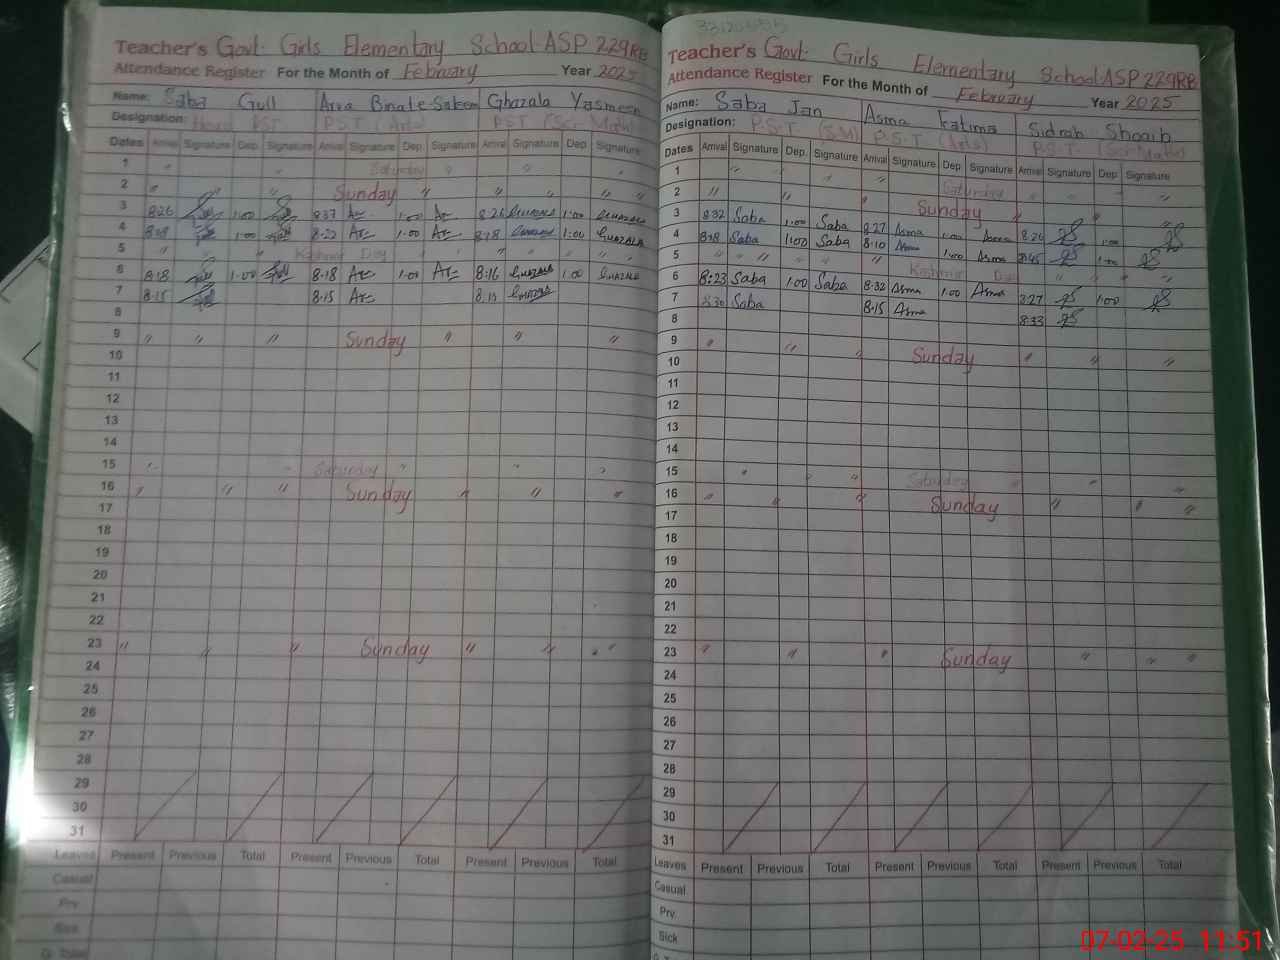 Teacher's Govt. Girls Elementary School ASP 229RB
Attendance Register For the Month of February Year 2025
Name: Saba Gull Arva Binate Saleem Ghazala Yasmeen
Designation: Head PST P.S.T (Arts) PST (Sci-Math)
Dates Arrival Signature Dep. Signature Arrival Signature Dep. Signature Arrival Signature Dep. Signature
1 " " Saturday " " "
2 " " Sunday " " " " "
3 8:26 1:00 8:37 1:00 8:26 GHAZALA 1:00 GHAZALA
4 1:00 8:22 1:00 8:18 GHAZALA 1:00 GHAZALA
5 " " Kashmir Day " " " " "
6 8:18 1:00 8:18 1:00 8:16 GHAZALA 1:00 GHAZALA
7 8:15 8:15 8:15 GHAZALA
8
9 " " " Sunday " " "
10
11
12
13
14
15 " " Saturday " " "
16 " " " Sunday " " "
17
18
19
20
21
22
23 " " " Sunday " " " "
24
25
26
27
28
29
30
31
Leaves Present Previous Total Present Previous Total Present Previous Total
Casual
Prv.
Sick
G. Total
Teacher's Govt. Girls Elementary School ASP 229RB
Attendance Register For the Month of February Year 2025
Name: Saba Jan Asma Fatima Sidrah Shoaib
Designation: P.S.T. (S.M) P.S.T. (Arts) P.S.T. (Sci-Math)
Dates Arrival Signature Dep. Signature Arrival Signature Dep Signature Arrival Signature Dep Signature
1 " " " " Saturday " " "
2 " " " Sunday " " "
3 8:32 Saba 1:00 Saba 8:27 Asma 1:00 Asma 8:26 1:00
4 8:18 Saba 1:00 Saba 8:10 Asma 1:00 Asma 8:45 1:00
5 " " " " " Kashmir Day " " "
6 8:23 Saba 1:00 Saba 8:32 Asma 1:00 Asma 8:27 1:00
7 8:30 Saba 8:15 Asma 8:33
8
9 " " " Sunday " " "
10
11
12
13
14
15 " " " Saturday " " "
16 " " " Sunday " " "
17
18
19
20
21
22
23 " " " Sunday " " "
24
25
26
27
28
29
30
31
Leaves Present Previous Total Present Previous Total Present Previous Total
Casual
Prv.
Sick
07-02-25 11:51